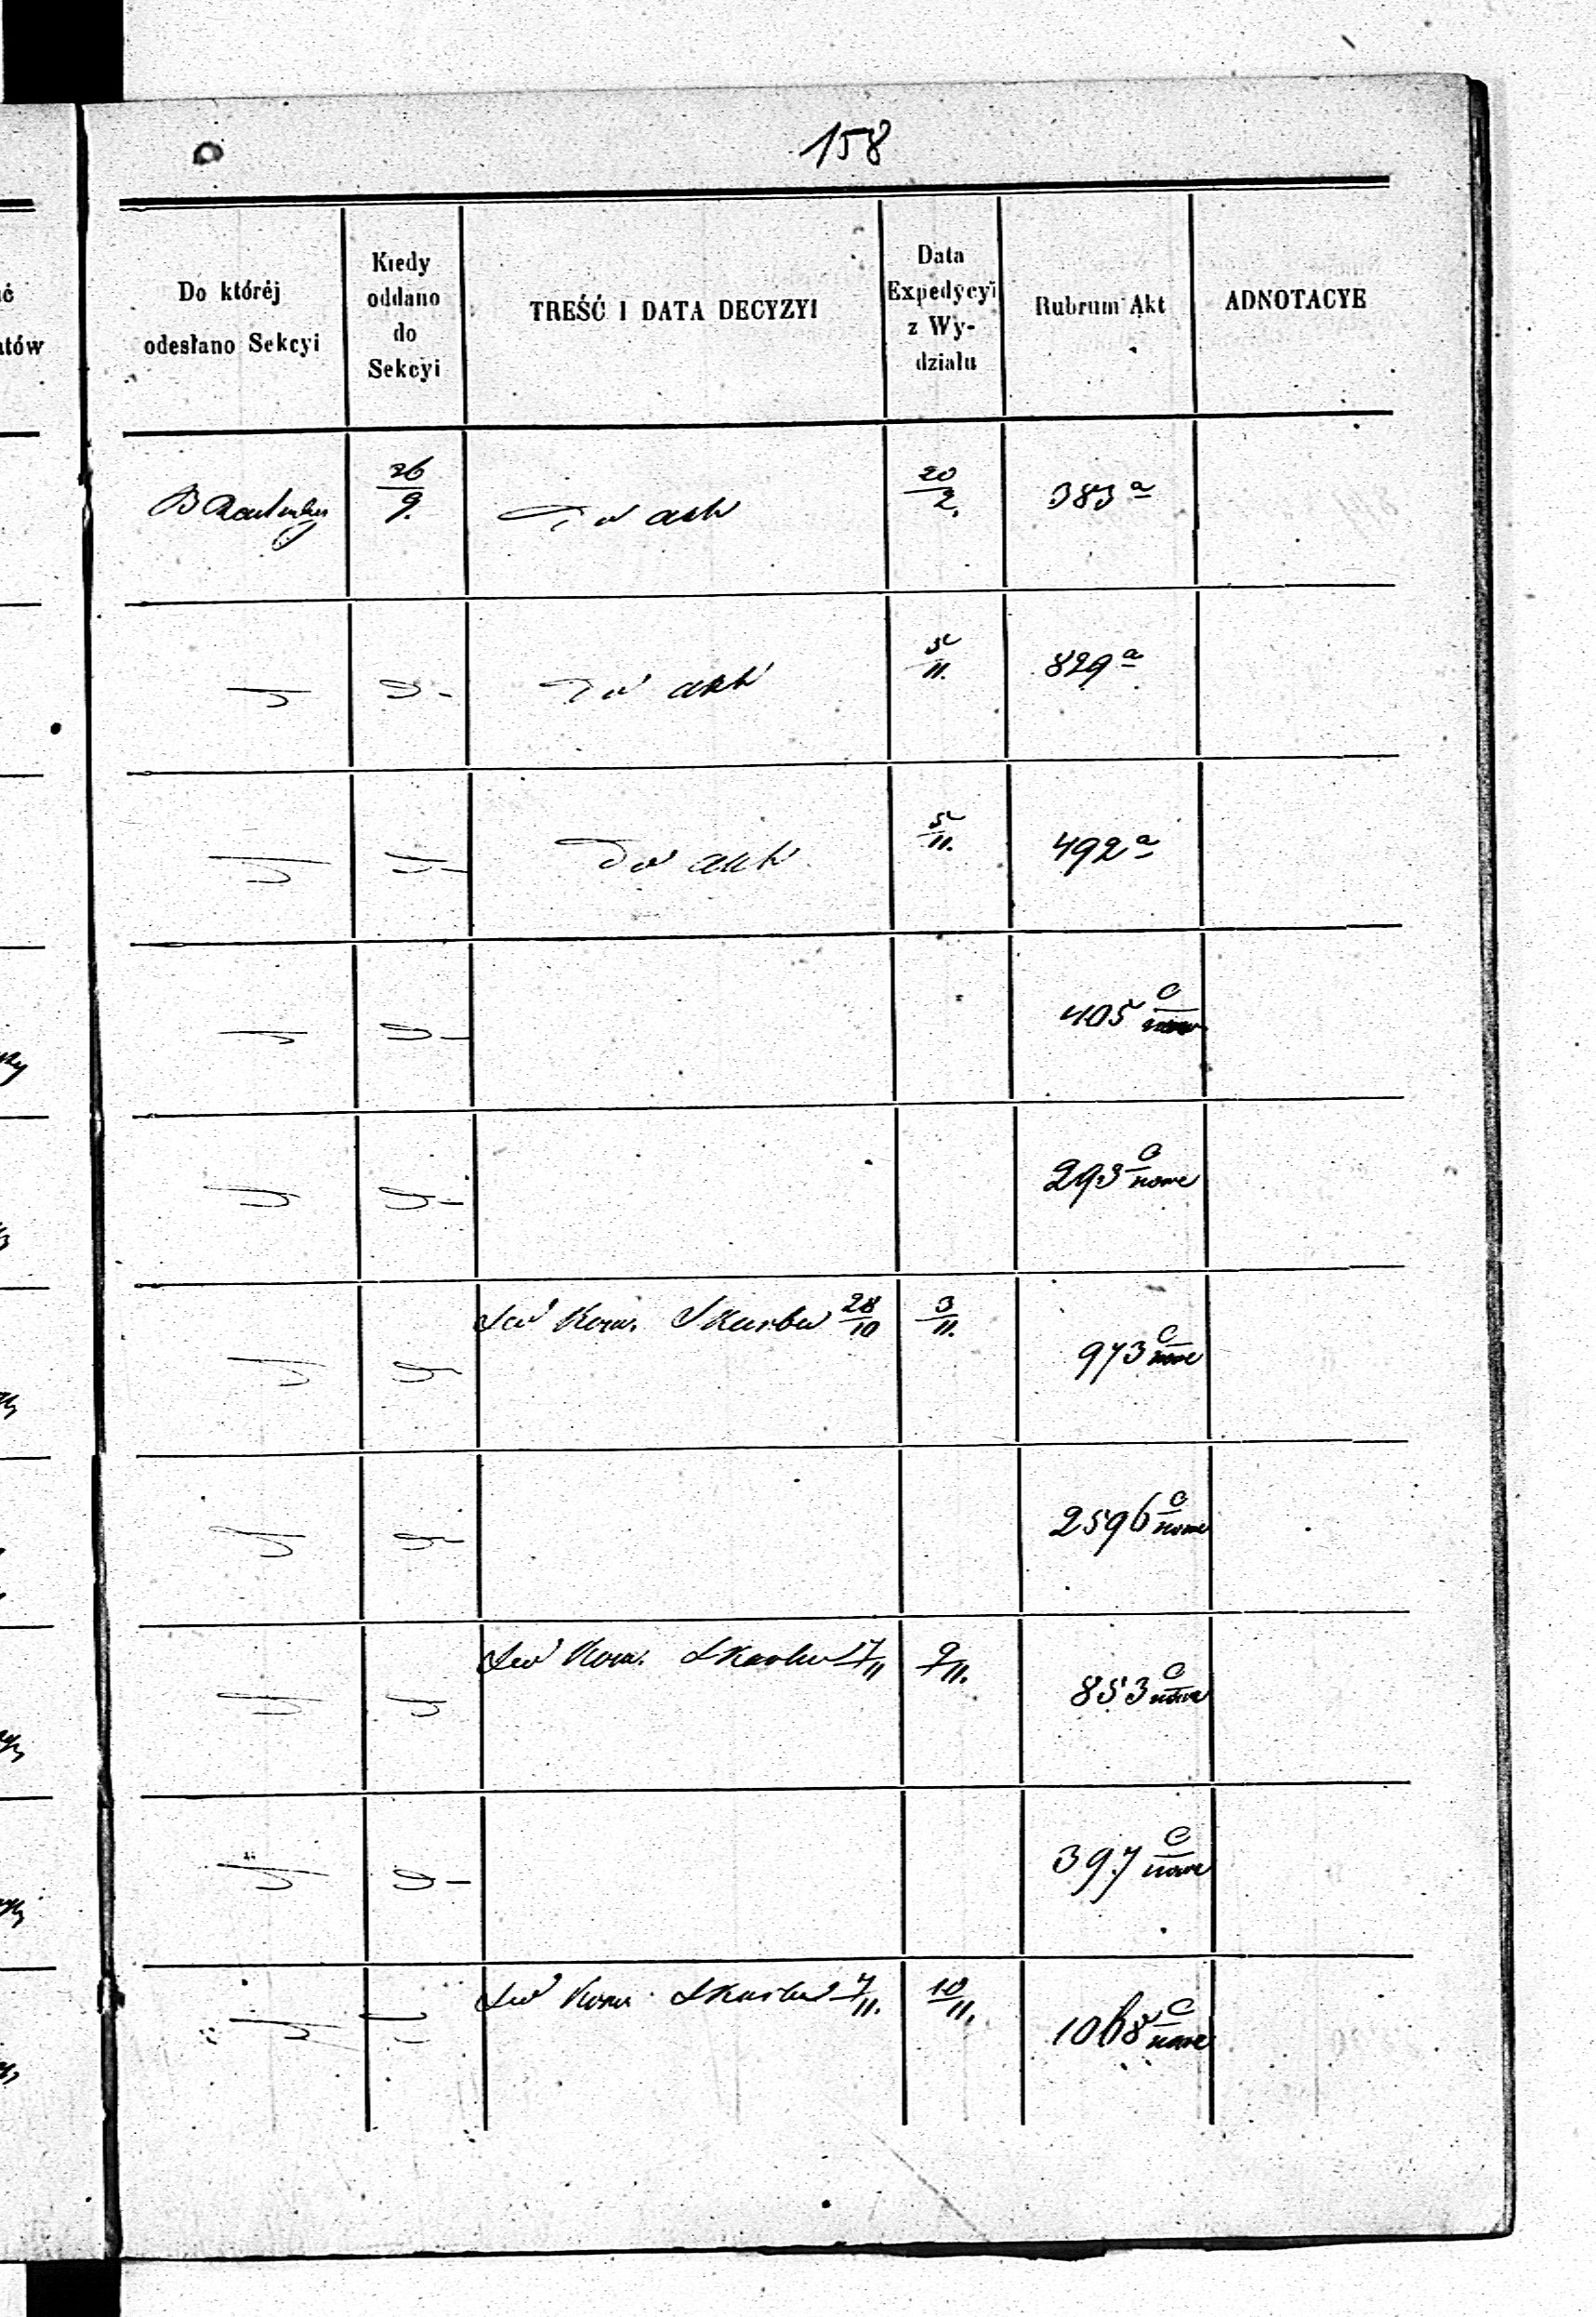 158
Do któréj
odesłano Sekcyi
Kiedy
oddano
do
Sekcyi
TREŚĆ I DATA DECYZYI
Data
Expedycyi
z Wy-
działu
Rubrum Akt
ADNOTACYE
26/9. Do akt 20/2. 383 a
Do akt 5/11. 829 a
Do akt 5/11. 492 a
405 C/nowe
293 C/nowe
Do Kom. Skarbu 28/10 3/11.
973 C/nowe
2596 C/nowe
Do Kom. Skarbu 7/11 9/11.
853 C/nowe
397 C/nowe
Do Kom. Skarbu 7/11. 10/11.
1068 C/nowe